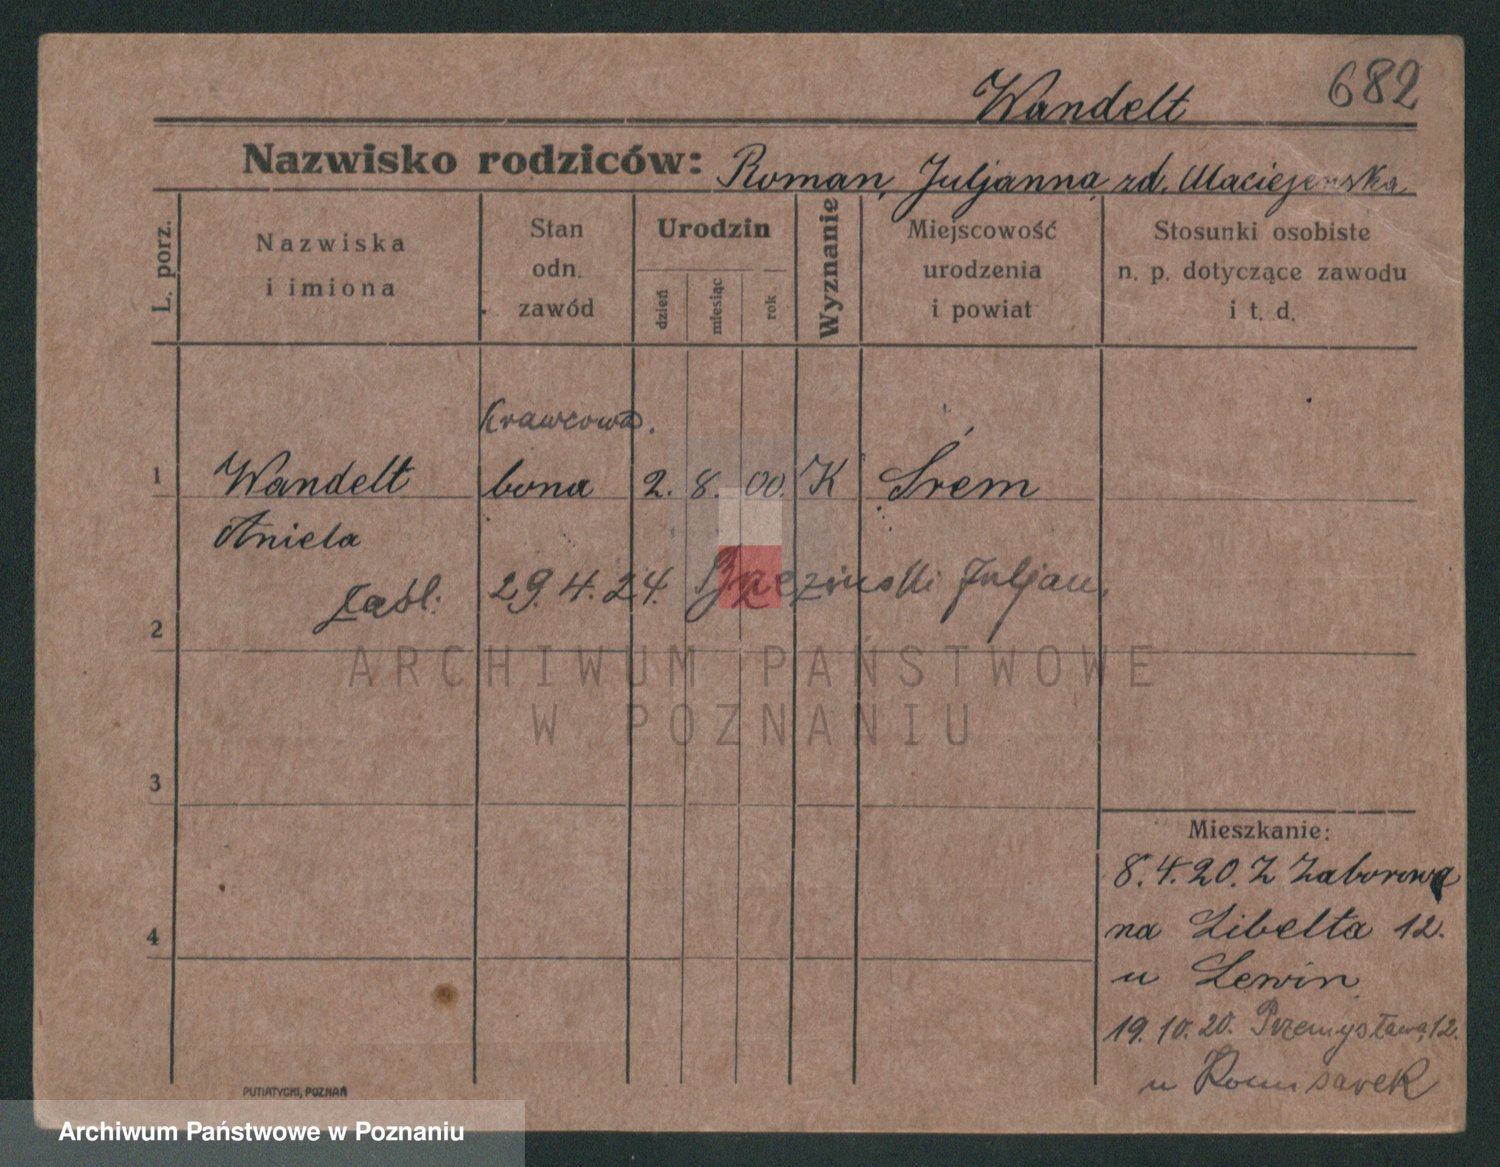 Wandelt 682
Nazwisko rodziców: Roman, Juljanna zd. Maciejewska
L. porz.
Nazwiska
i imiona
Stan
odn.
zawód
Urodzin
dzień
miesiąc
rok
Wyznanie
Miejscowość
urodzenia
i powiat
Stosunki osobiste
n. p. dotyczące zawodu
i t. d.
Krawcowa.
1 Wandelt bona 2. 8. 00. K Śrem
Aniela
zaśl: 29.4.24. Brzezinski Juljan.
2
ARCHIWUM PAŃSTWOWE
W POZNANIU
3
4
Mieszkanie:
8.4.20. Z Zaborowa
na Libelta 12.
u Lewin
19.10.20. Przemysława 12.
u
PUTIATYCKI, POZNAŃ
Archiwum Państwowe w Poznaniu